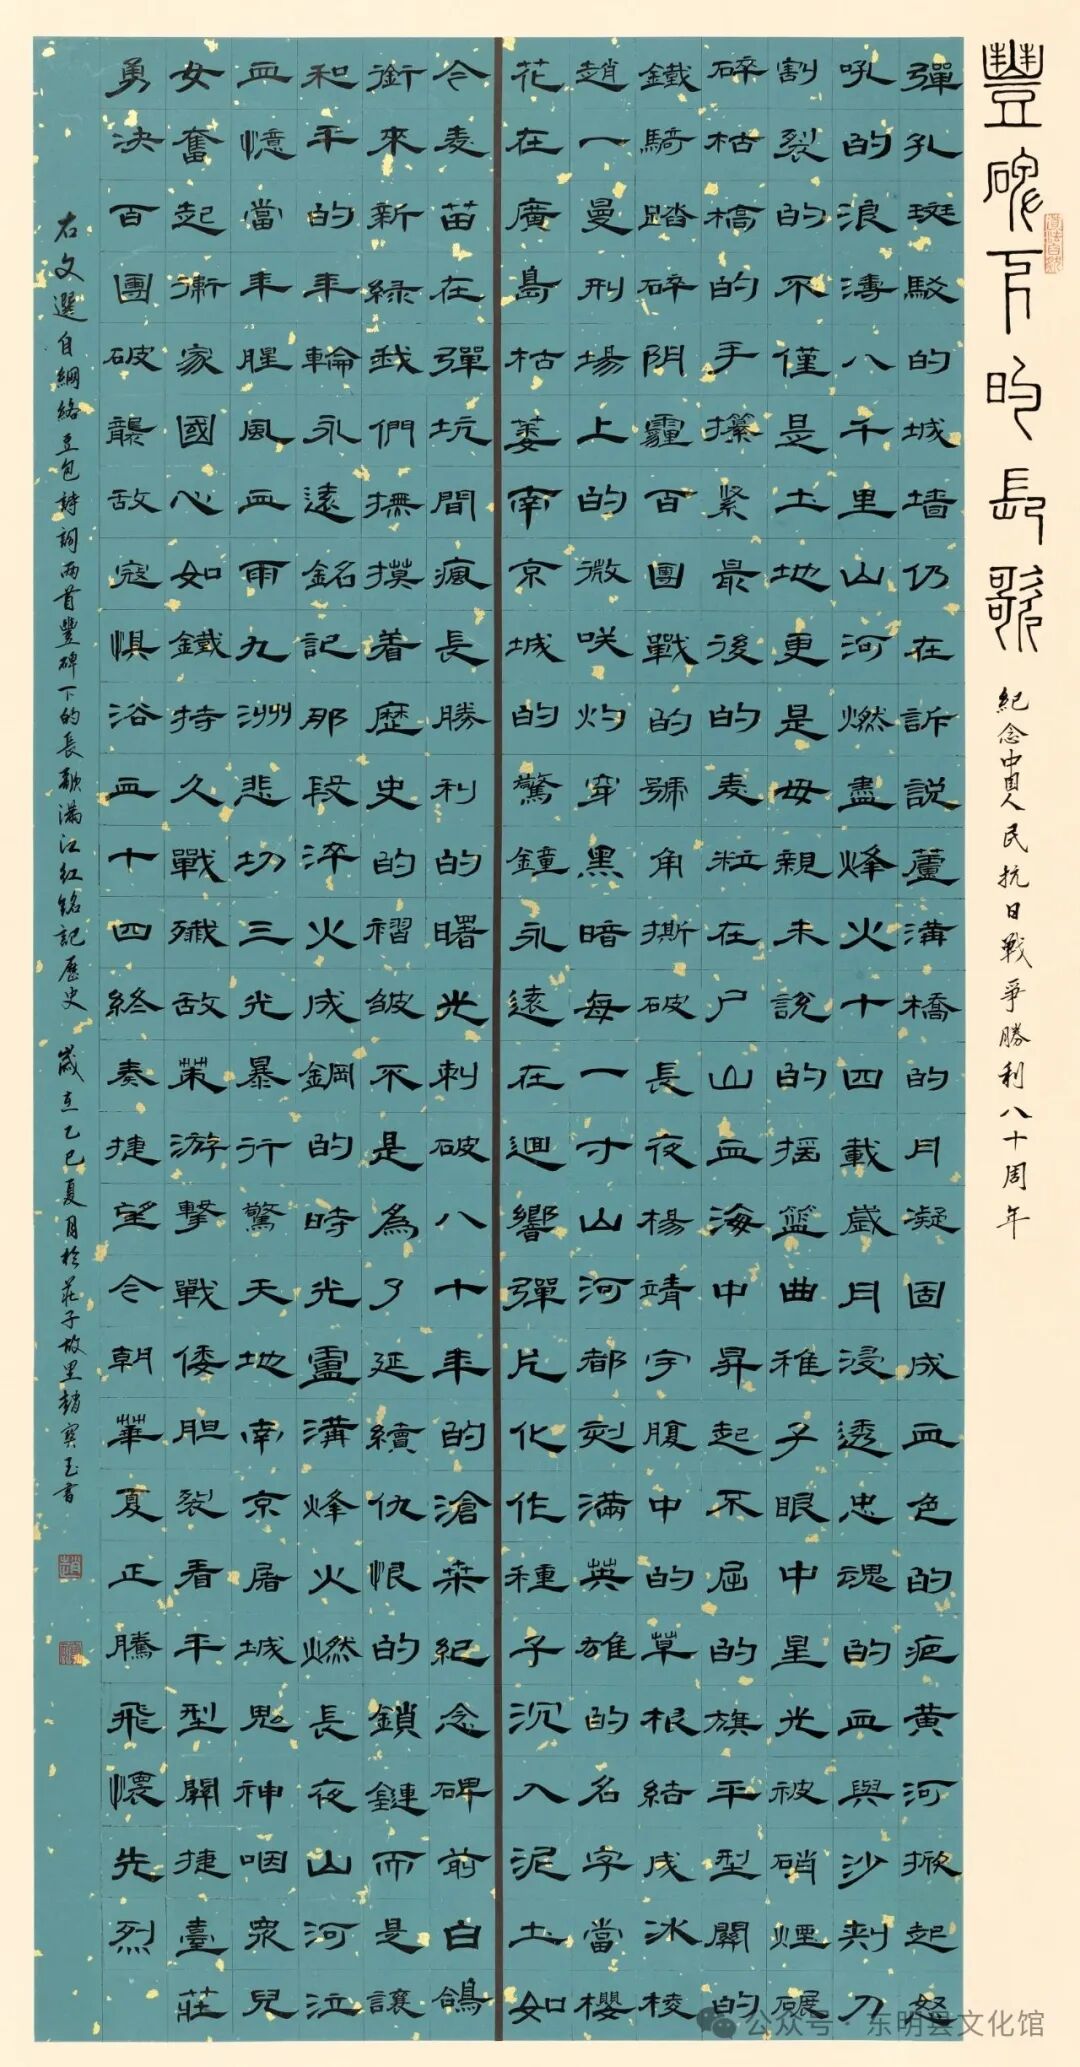 豐碑下的長歌
紀念中国人民抗日戰爭勝利八十周年
彈孔斑駁的城墻仍在訴說蘆溝橋的月凝固成血色的疤黃河掀起怒
吼的浪濤八千里山河燃盡烽火十四載歲月浸透忠魂的血與沙刺刀
割裂的不僅是土地更是母親未說的搖籃曲稚子眼中星光被硝煙碾
碎枯槁的手攥緊最後的麦粒在尸山血海中昇起不屈的旗平型關的
鐵騎踏碎阴霾百團戰的號角撕破長夜楊靖宇腹中的草根結成冰棱
趙一曼刑場上的微咲灼穿黑暗每一寸山河都刻滿英雄的名字當櫻
花在廣島枯萎南京城的驚鐘永遠在迴響彈片化作種子沉入泥土如
今麦苗在彈坑間瘋長勝利的曙光刺破八十年的滄桑紀念碑前白鴿
銜來新緑我們撫摸着歷史的褶皱不是為了延續仇恨的鎖鏈而是讓
和平的年輪永遠銘記那段淬火成鋼的時光盧溝烽火燃長夜山河泣
血憶當年腥風血雨九洲悲切三光暴行驚天地南京屠城鬼神咽眾兒
女奮起衛家國心如鐵持久戰殲敌策游擊戰倭胆裂看平型關捷臺莊
勇决百團破襲敌寇惧浴血十四終奏捷望今朝華夏正騰飛懷先烈
右文選自網絡豆包詩詞兩首豐碑下的長歌滿江紅銘記歷史 歲在乙巳夏月於莊子故里趙寶玉書
公众号·东明县文化馆